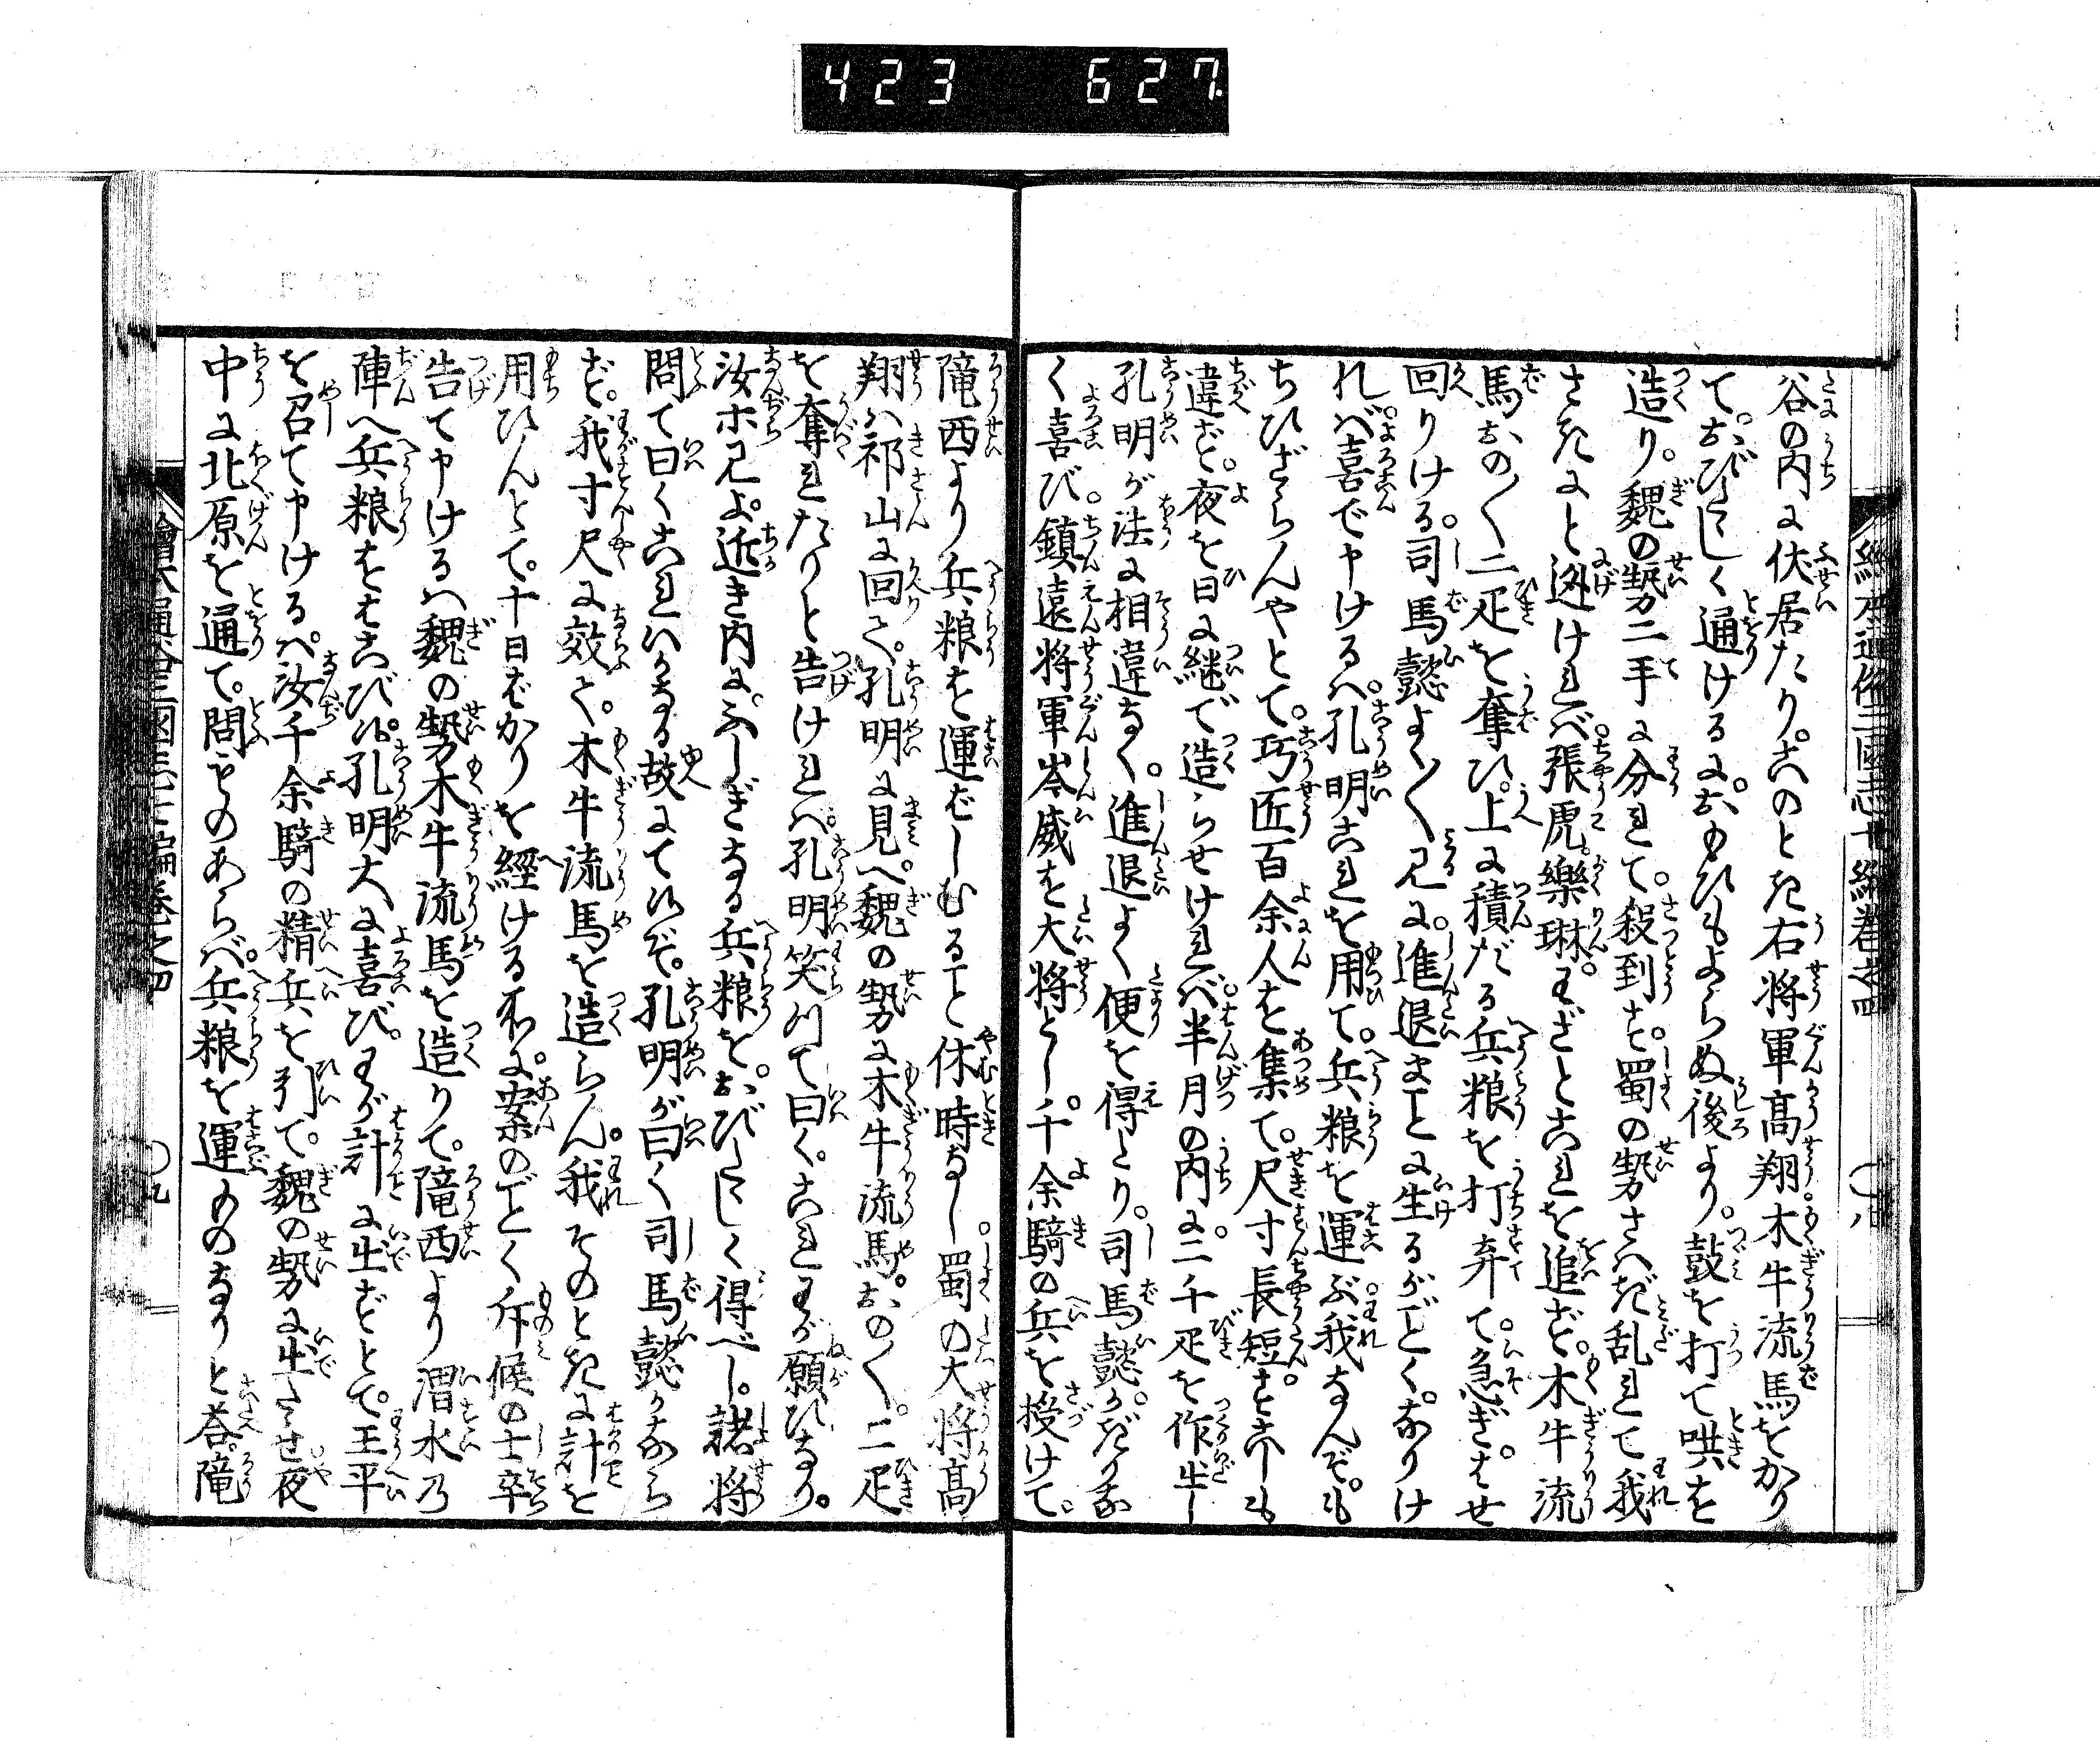 423 627
繪本通俗三國志七編巻之四 〇八
谷の内に伏居たり。このとき右将軍高翔木牛流馬をかり
て。おびたゝしく通けるに。おもひもよらぬ後より。鼓を打て哄を
造り。魏の勢二手に分れて。殺到す。蜀の勢さへぎ乱れて我
さきにと迯ければ。張虎。樂琳。わざとこれを追ず。木牛流
馬おの〱二疋を奪ひ。上に積だる兵粮を打弃て。急ぎ。はせ
回りける。司馬懿よく〱見に。進退まことに生るがごとく。なりけ
れば。喜で申けるハ。孔明これを用て。兵粮を運ぶ。我なんぞ。も
ちひざらんやとて。巧匠百余人を集て。尺寸長短。すこしも
違ず。夜を日に継で造らせければ。半月の内に。二千疋を作出し
孔明が法に相違なく。進退よく便を得たり。司馬懿。かぎりな
く喜び。鎮遠将軍岑威を大将とし。千余騎の兵を授けて。
隴西より兵粮を運ばしむること休時なし。蜀の大将高
翔ハ祁山に回て。孔明に見へ。魏の勢に木牛流馬。おの〱。二疋
を奪れたりと告ければ。孔明笑て曰く。これわが願ひなり。
汝ホ見よ。近き内に。ふしぎなる兵粮を。おびたゝしく得べし。諸将
問て曰くこれハいかなる故にて候ぞ。孔明が曰く司馬懿かなら
ず。我寸尺に效て。木牛流馬を造らん。我そのときに計を
用ひんとて。十日ばかりを經ける所に。案のごとく斥候の士卒
告て申けるハ魏の勢木牛流馬を造りて。隴西より渭水乃
陣へ兵粮をはこび候。孔明大に喜び。わが計に出ずとて。王平
を召て申けるハ。汝千余騎の精兵を引て。魏の勢に出たゝせ夜
中に北原を通て。問ものあらば。兵粮を運ものなりと荅。隴
繪本通俗三國志七編巻之四 〇九